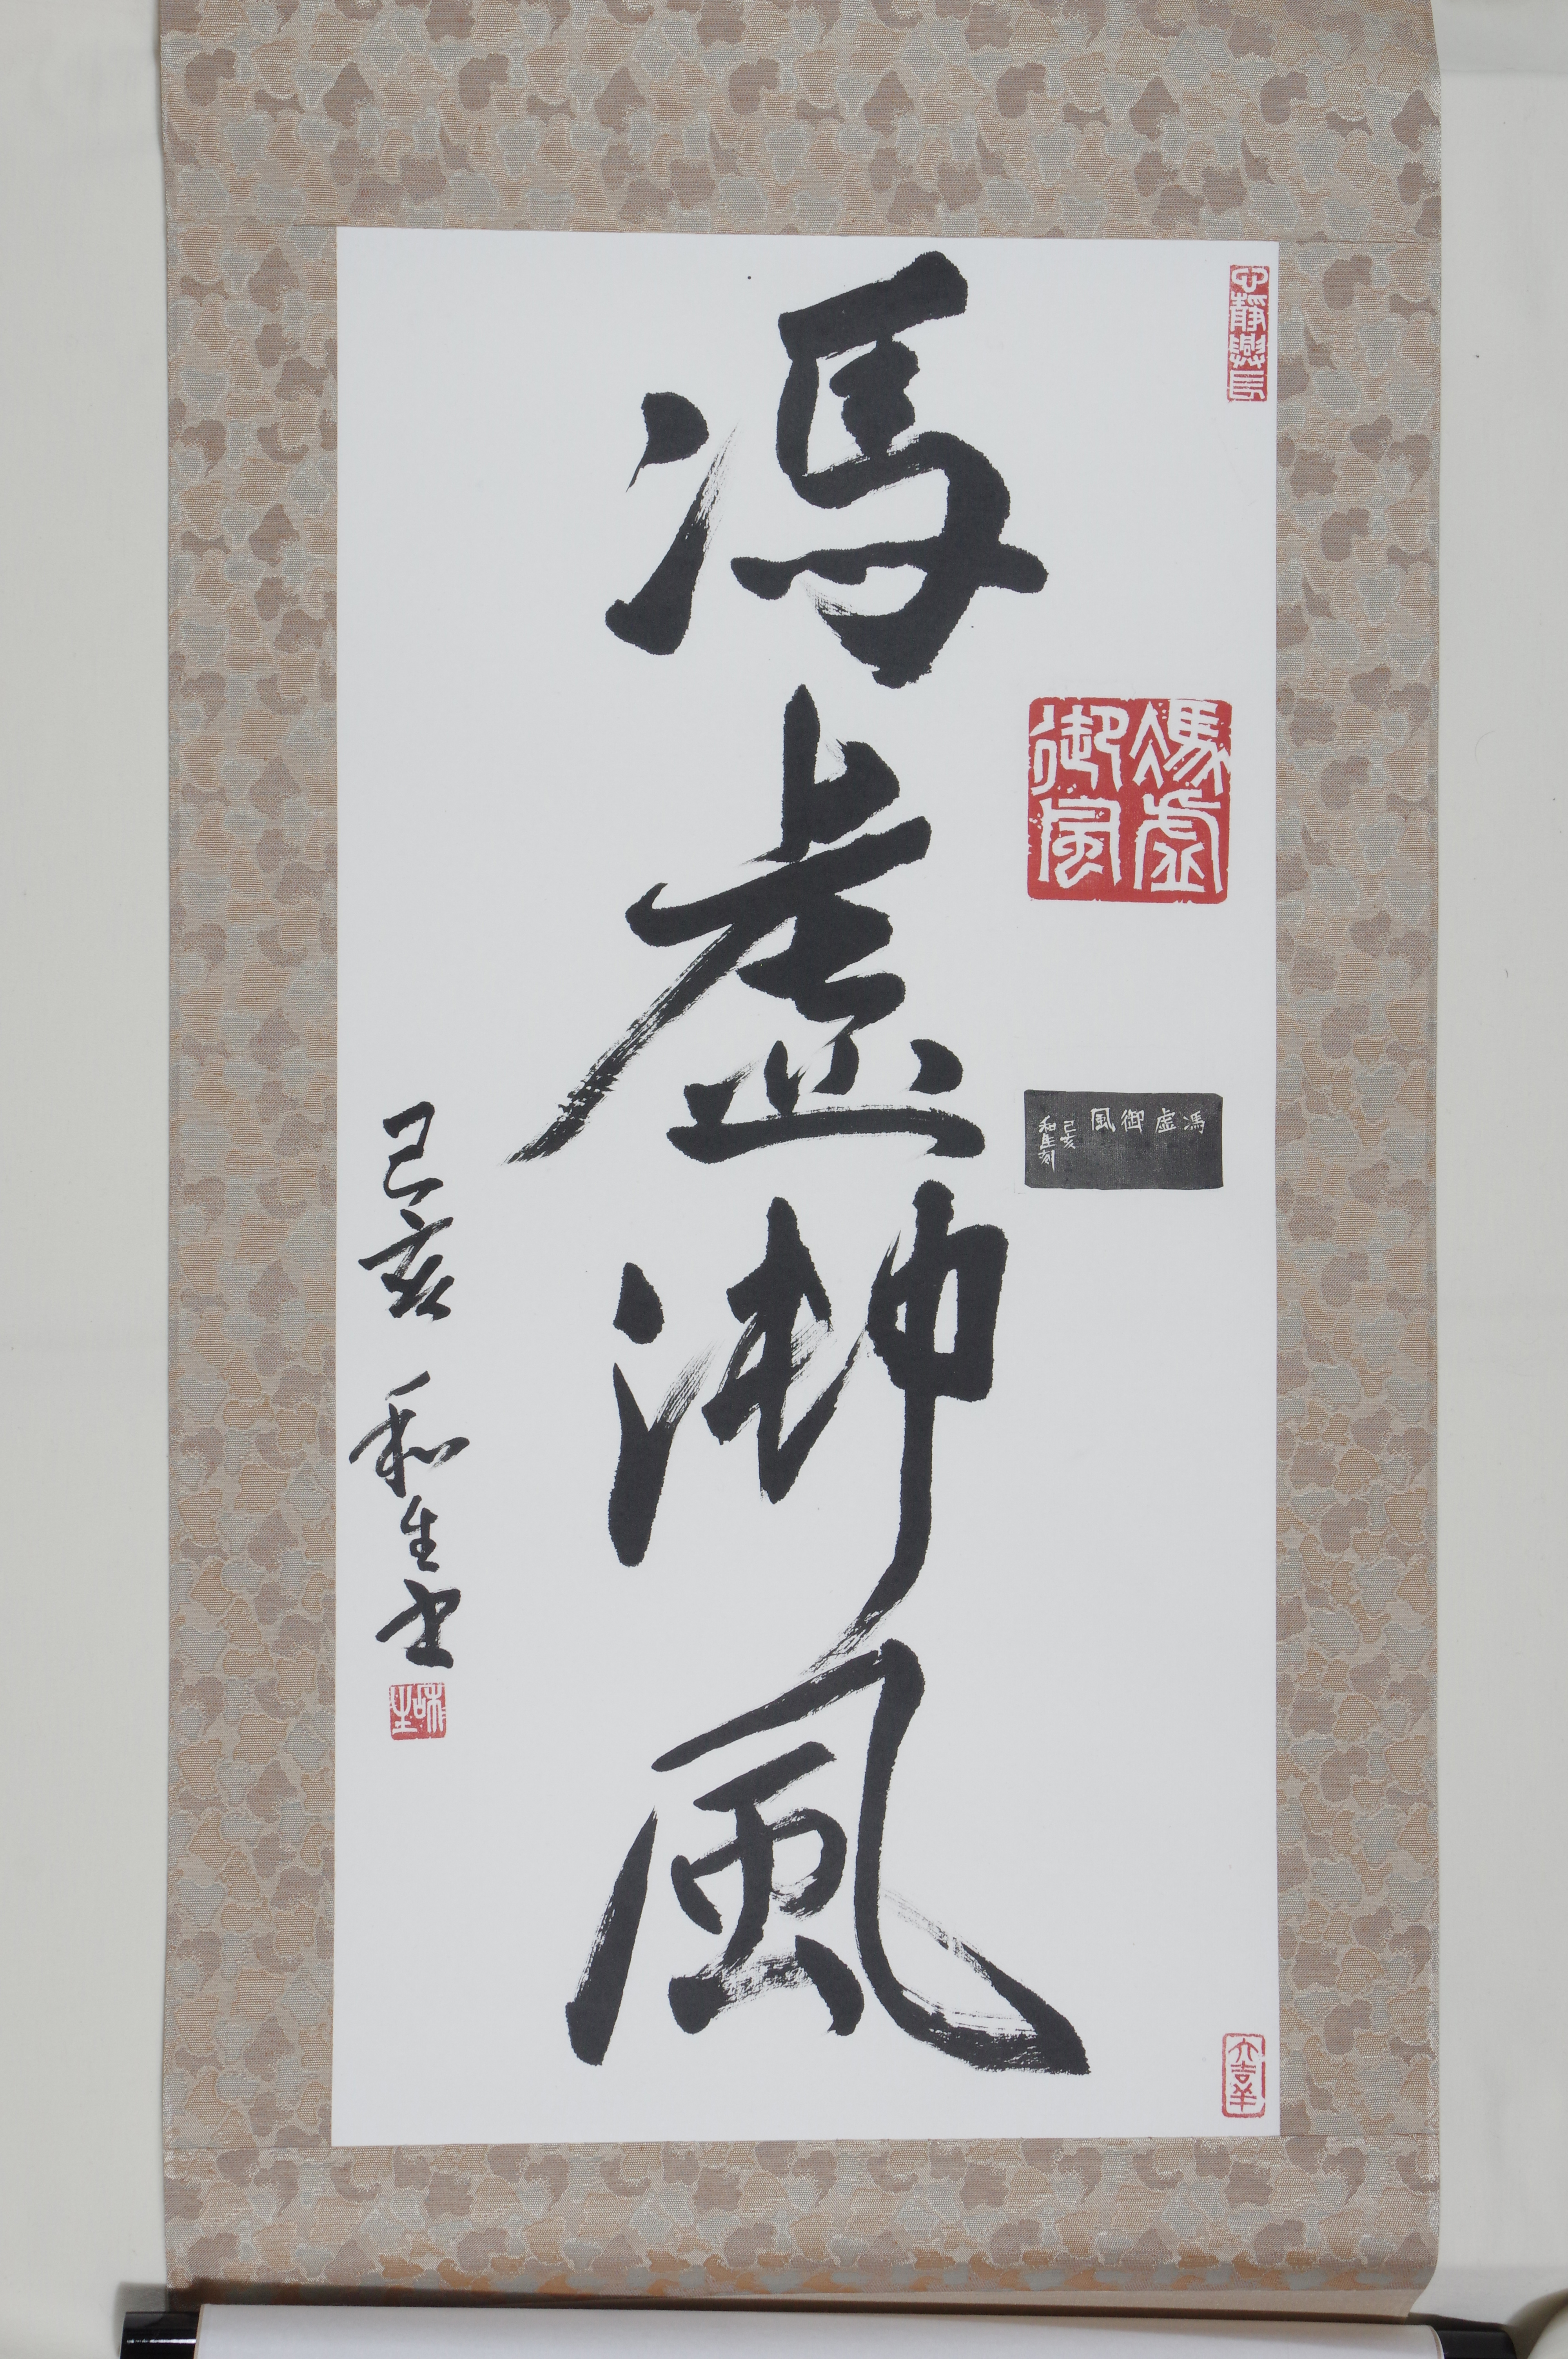 心靜興長
馮虛
御風
馮虛御風
己亥
和生刻
大吉羊
馮虛御風
己亥 和生書
和生